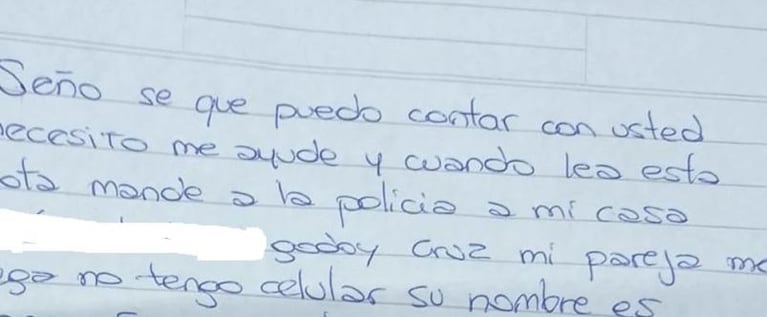 Seño se que puedo contar con usted
ecesito me ayude y cuando lea esta
ota mande a la policia a mi casa
godoy cruz mi pareja me
ga no tengo celular su nombre es